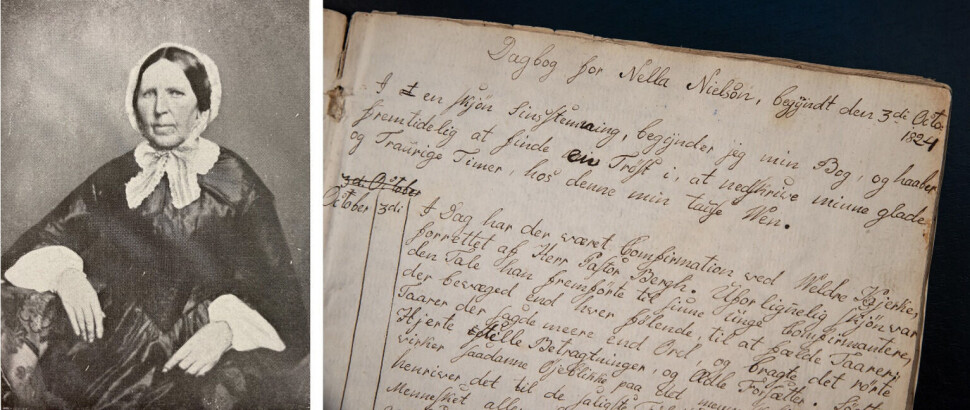 Dagbog for Nella Nielson, begÿndt den 3di Octo
1824
I en skjön Sinsstemning, begÿnder jeg min Bog, og haaber
fremtidelig at finde en Tröst i, at nedskrive minne glade
og Traurige Timer, hos denne min tause Wen.
3di October
October 3di
I Dag har der wæret Compirmation wed Weldre Kjerke,
forrettet af Herr Pastor Bergh. Uforlignelig skjön war
den Tale han fremförte til sinne unge Compirmantere,
der bewæged end hver fölende, til at fælde Taarer;
Taarer der sagde meere end Ord, og bragte det rörte
Hjerte stille Betragtninger, og Ædle Forsætter.
virker saadanne Öjeblikke paa det
henriver det til de saligste
Mennesket